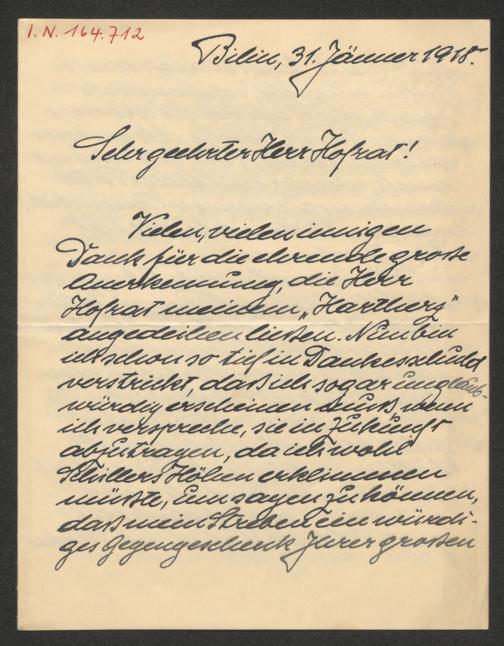 I.N. 164.712
Bilin, 31. Jänner 1918.
Sehr geehrter Herr Hofrat!
Vielen, vielen innigen
Dank für die ehrende große
Anerkennung, die Herr
Hofrat meinem „Hartherz"
angedeihen ließen. Nun bin
ich schon so tief in Dankesschuld
verstrickt, daß ich sogar unglaub-
würdig erscheinen muß, wenn
ich verspreche, sie in Zukunft
abzutragen, da ich wohl
Schillers Höhen erklimmen
müßte, um sagen zu können,
daß mein Streben ein würdi-
ges Gegengeschenk Ihrer großen